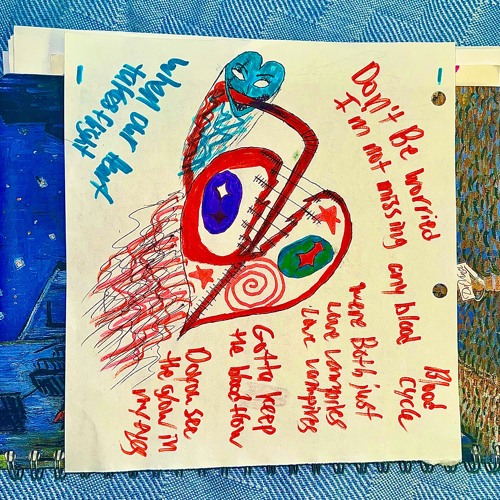 When our heart
takes flight
Don't Be worried
I'm not missing any blood
Blood
Cycle
were Both just
Love vampires
Love vampires
Gotta keep
the blood flow
Do you see
the glow in
my eyes